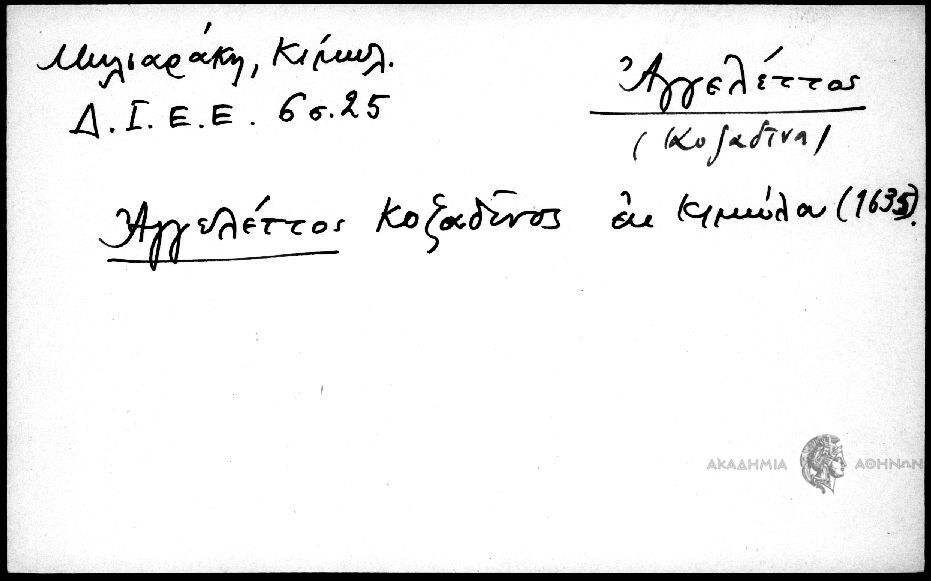 Μηλιαράκη, Κίμωλ.
Δ.Ι.Ε.Ε. 6 σ. 25
Ἀγγελέττος
(Κοζαδῖνος)
Ἀγγελέττος Κοζαδῖνος ἐκ Κιμώλου (1635).
ΑΚΑΔΗΜΙΑ ΑΘΗΝΩΝ